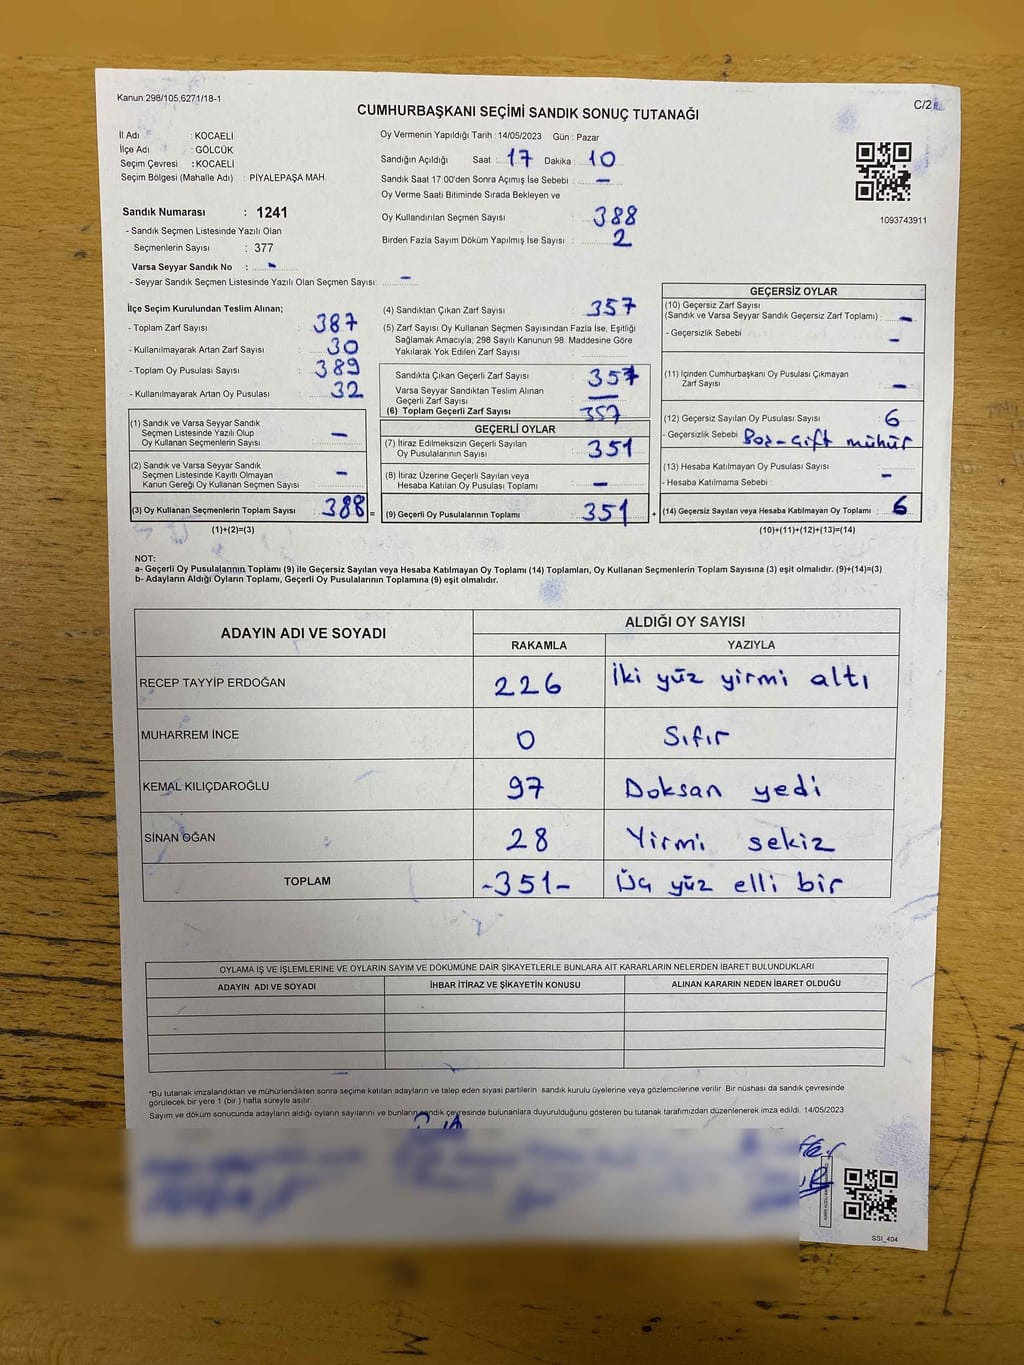 Kanun:298/105,6271/18-1
C/2
CUMHURBAŞKANI SEÇİMİ SANDIK SONUÇ TUTANAĞI
İl Adı : KOCAELİ
İlçe Adı : GÖLCÜK
Seçim Çevresi : KOCAELİ
Seçim Bölgesi (Mahalle Adı) : PİYALEPAŞA MAH.
Oy Vermenin Yapıldığı Tarih : 14/05/2023 Gün : Pazar
Sandığın Açıldığı Saat : 17 Dakika : 10
Sandık Saat 17:00'den Sonra Açımış İse Sebebi : -
Oy Verme Saati Bitiminde Sırada Bekleyen ve
Oy Kullandırılan Seçmen Sayısı : 388
Birden Fazla Sayım Döküm Yapılmış İse Sayısı : 2
1093743911
Sandık Numarası : 1241
- Sandık Seçmen Listesinde Yazılı Olan
Seçmenlerin Sayısı : 377
Varsa Seyyar Sandık No : -
- Seyyar Sandık Seçmen Listesinde Yazılı Olan Seçmen Sayısı: -
İlçe Seçim Kurulundan Teslim Alınan;
- Toplam Zarf Sayısı : 387
- Kullanılmayarak Artan Zarf Sayısı : 30
- Toplam Oy Pusulası Sayısı : 389
- Kullanılmayarak Artan Oy Pusulası : 32
(1) Sandık ve Varsa Seyyar Sandık
Seçmen Listesinde Yazılı Olup
Oy Kullanan Seçmenlerin Sayısı -
(2) Sandık ve Varsa Seyyar Sandık
Seçmen Listesinde Kayıtlı Olmayan
Kanun Gereği Oy Kullanan Seçmen Sayısı -
(3) Oy Kullanan Seçmenlerin Toplam Sayısı 388 =
(1)+(2)=(3)
(4) Sandıktan Çıkan Zarf Sayısı : 357
(5) Zarf Sayısı Oy Kullanan Seçmen Sayısından Fazla İse, Eşitliği
Sağlamak Amacıyla; 298 Sayılı Kanunun 98. Maddesine Göre
Yakılarak Yok Edilen Zarf Sayısı :
Sandıkta Çıkan Geçerli Zarf Sayısı : 357
Varsa Seyyar Sandıktan Teslim Alınan
Geçerli Zarf Sayısı : -
(6) Toplam Geçerli Zarf Sayısı 357
GEÇERLİ OYLAR
(7) İtiraz Edilmeksizin Geçerli Sayılan
Oy Pusulalarının Sayısı : 351
(8) İtiraz Üzerine Geçerli Sayılan veya
Hesaba Katılan Oy Pusulası Toplamı : -
(9) Geçerli Oy Pusulalarının Toplamı : 351 +
GEÇERSİZ OYLAR
(10) Geçersiz Zarf Sayısı
(Sandık ve Varsa Seyyar Sandık Geçersiz Zarf Toplamı) : -
- Geçersizlik Sebebi : -
(11) İçinden Cumhurbaşkanı Oy Pusulası Çıkmayan
Zarf Sayısı : -
(12) Geçersiz Sayılan Oy Pusulası Sayısı : 6
- Geçersizlik Sebebi Boş-Çift mühür
(13) Hesaba Katılmayan Oy Pusulası Sayısı : -
- Hesaba Katılmama Sebebi :
(14) Geçersiz Sayılan veya Hesaba Katılmayan Oy Toplamı : 6
(10)+(11)+(12)+(13)=(14)
NOT:
a- Geçerli Oy Pusulalarının Toplamı (9) ile Geçersiz Sayılan veya Hesaba Katılmayan Oy Toplamı (14) Toplamları, Oy Kullanan Seçmenlerin Toplam Sayısına (3) eşit olmalıdır. (9)+(14)=(3)
b- Adayların Aldığı Oyların Toplamı, Geçerli Oy Pusulalarının Toplamına (9) eşit olmalıdır.
ADAYIN ADI VE SOYADI
ALDIĞI OY SAYISI
RAKAMLA YAZIYLA
RECEP TAYYİP ERDOĞAN 226 İki yüz yirmi altı
MUHARREM İNCE 0 Sıfır
KEMAL KILIÇDAROĞLU 97 Doksan yedi
SİNAN OĞAN 28 Yirmi sekiz
TOPLAM -351- Üç yüz elli bir
OYLAMA İŞ VE İŞLEMLERİNE VE OYLARIN SAYIM VE DÖKÜMÜNE DAİR ŞİKAYETLERLE BUNLARA AİT KARARLARIN NELERDEN İBARET BULUNDUKLARI
ADAYIN ADI VE SOYADI İHBAR İTİRAZ VE ŞİKAYETİN KONUSU ALINAN KARARIN NEDEN İBARET OLDUĞU
*Bu tutanak imzalandıktan ve mühürlendikten sonra seçime katılan adayların ve talep eden siyasi partilerin sandık kurulu üyelerine veya gözlemcilerine verilir. Bir nüshası da sandık çevresinde
görülecek bir yere 1 (bir ) hafta süreyle asılır.
Sayım ve döküm sonucunda adayların aldığı oyların sayılarını ve bunların sandık çevresinde bulunanlara duyurulduğunu gösteren bu tutanak tarafımızdan düzenlenerek imza edildi. 14/05/2023
SSI_404